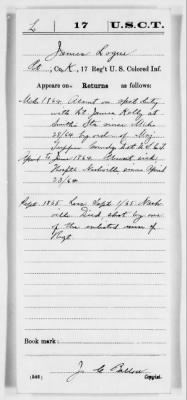 L | 17 | U.S.C.T.
James Logue
Pvt, Co. K, 17 Reg't U. S. Colored Inf.
Appears on
Returns as follows:
Mch 1864. Absent on spcl duty
with Lt James Kelly at
Since Mch
28/64 by order of Maj
Tupper Comdg Det U.C.T.
April to June 1864. Absent sick
Hosptl Nashville since April
23/64
Sept. 1865 Loss Sept 1/65 Nash
ville Died, shot by one
of the enlisted men of
Regt
Book mark:
(546)
J. C. Ballou
Copyist.